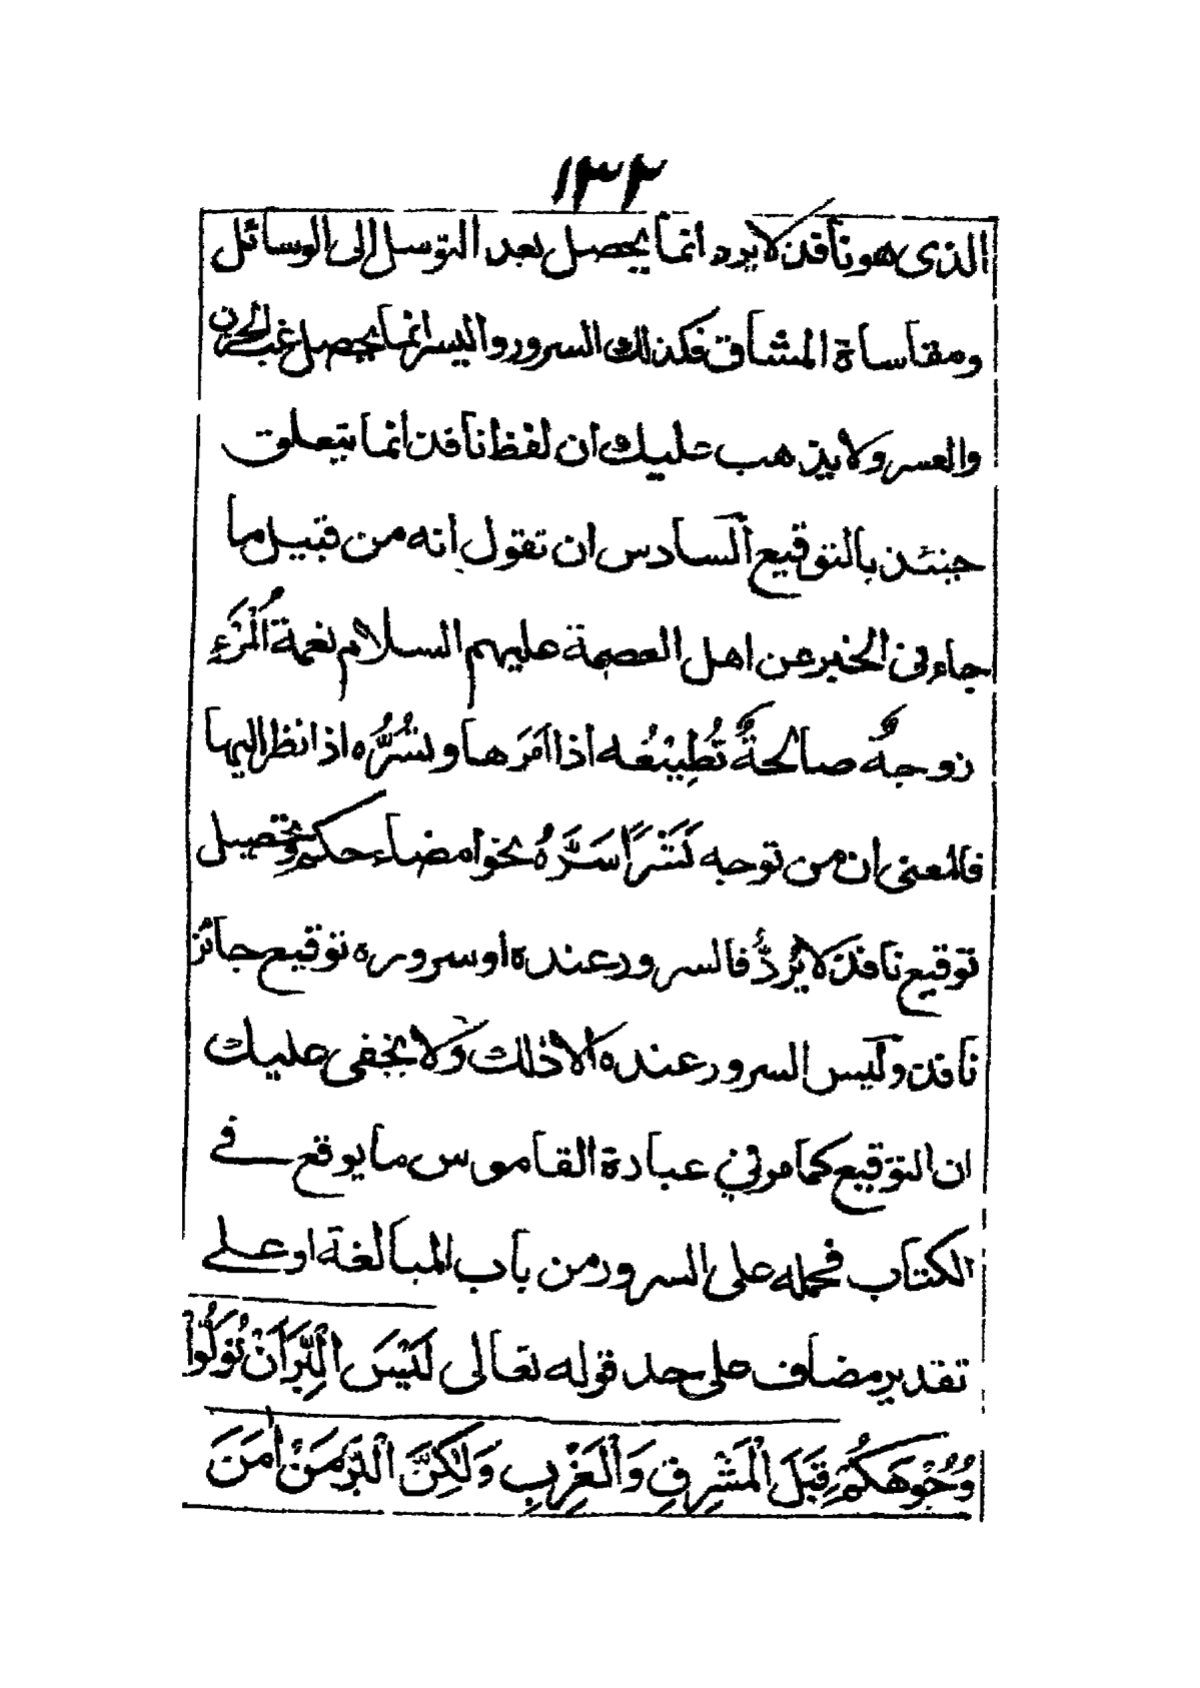 ١٣٢
الذى هو نافذ لا يرد انما يحصل بعد التوسل الى الوسائل
ومقاساة المشاق فكذلك السرور واليسر انما يحصل غب الحزن
والعسر ولا يذهب عليك ان لفظ نافذ انما يتعلق
حينئذ بالتوقيع السادس ان تقول انه من قبيل ما
جاء فى الخبر عن اهل العصمة عليهم السلام نعمة اُلْمَرْءِ
زوجةٌ صالحةٌ تُطِيْعُه اذا اَمَرَها وتَسُرُّه اذا نظر اليها
فالمعنى ان من توجه كَنَثْرًا سَرَّهُ بخو امضاء حكم وتحصيل
توقيع نافذ لا يُرَدُّ فالسرور عنده او سروره توقيع جائز
نافذ وليس السرور عنده الا ذلك ولا يخفى عليك
ان التوقيع كما مر فى عبارة القاموس ما يوقع فے
الكتاب فحمله على السرور من باب المبالغة او علے
تقدير مضاف على حد قوله تعالى لَيْسَ الْبِرَّ اَنْ تُوَلُّوْا
وُجُوْهَكُمْ قِبَلَ الْمَشْرِقِ وَالْمَغْرِبِ وَلٰكِنَّ الْبِرَّ مَنْ اٰمَنَ